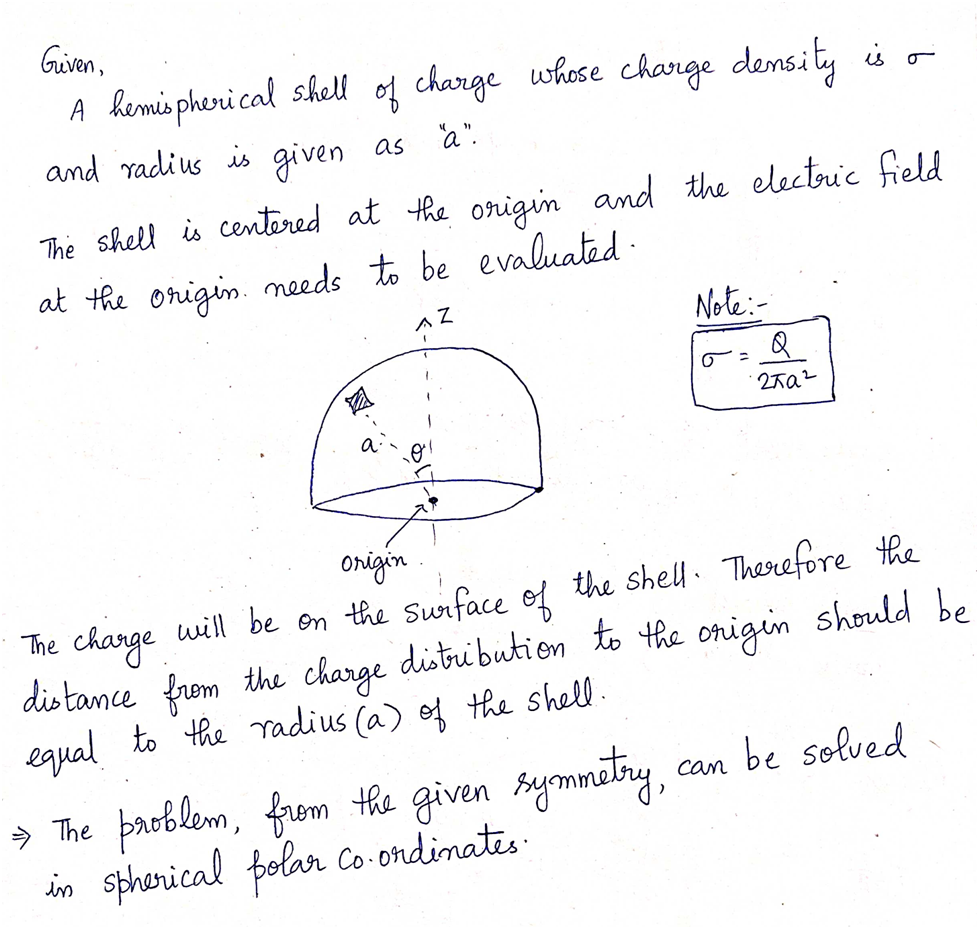 Given,
A hemispherical shell of charge whose charge density is σ
and radius is given as "a".
The shell is centered at the origin and the electric field
at the origin. needs to be evaluated.
Z
Note:-
σ = Q / 2πa²
a
θ
origin
The charge will be on the surface of the shell. Therefore the
distance from the charge distribution to the origin should be
equal to the radius (a) of the shell.
⇒ The problem, from the given symmetry, can be solved
in spherical polar co-ordinates.